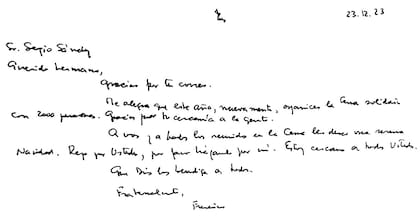 23.12.23
Sr. Sergio Sánchez
Querido hermano,
gracias por tu correo.
Me alegra que este año, nuevamente, organices la Cena solidaria
con 2000 personas. Gracias por tu cercanía a la gente.
A vos y a todos los reunidos en la Cena les deseo una serena
Navidad. Rezo por Ustedes, por favor háganlo por mí. Estoy cercano a todos Ustedes.
Que Dios los bendiga a todos.
Fraternalmente,
Francisco